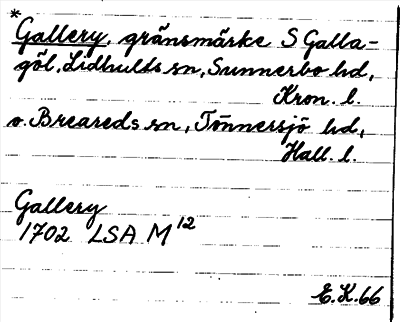 *
Gallery, gränsmärke S Galla-
göl, Lidhults sn, Sunnerbo hd,
Kron. l.
o. Breareds sn, Tönnersjö hd,
Hall. l.
Gallery
1702 LSA M12
E.K.66